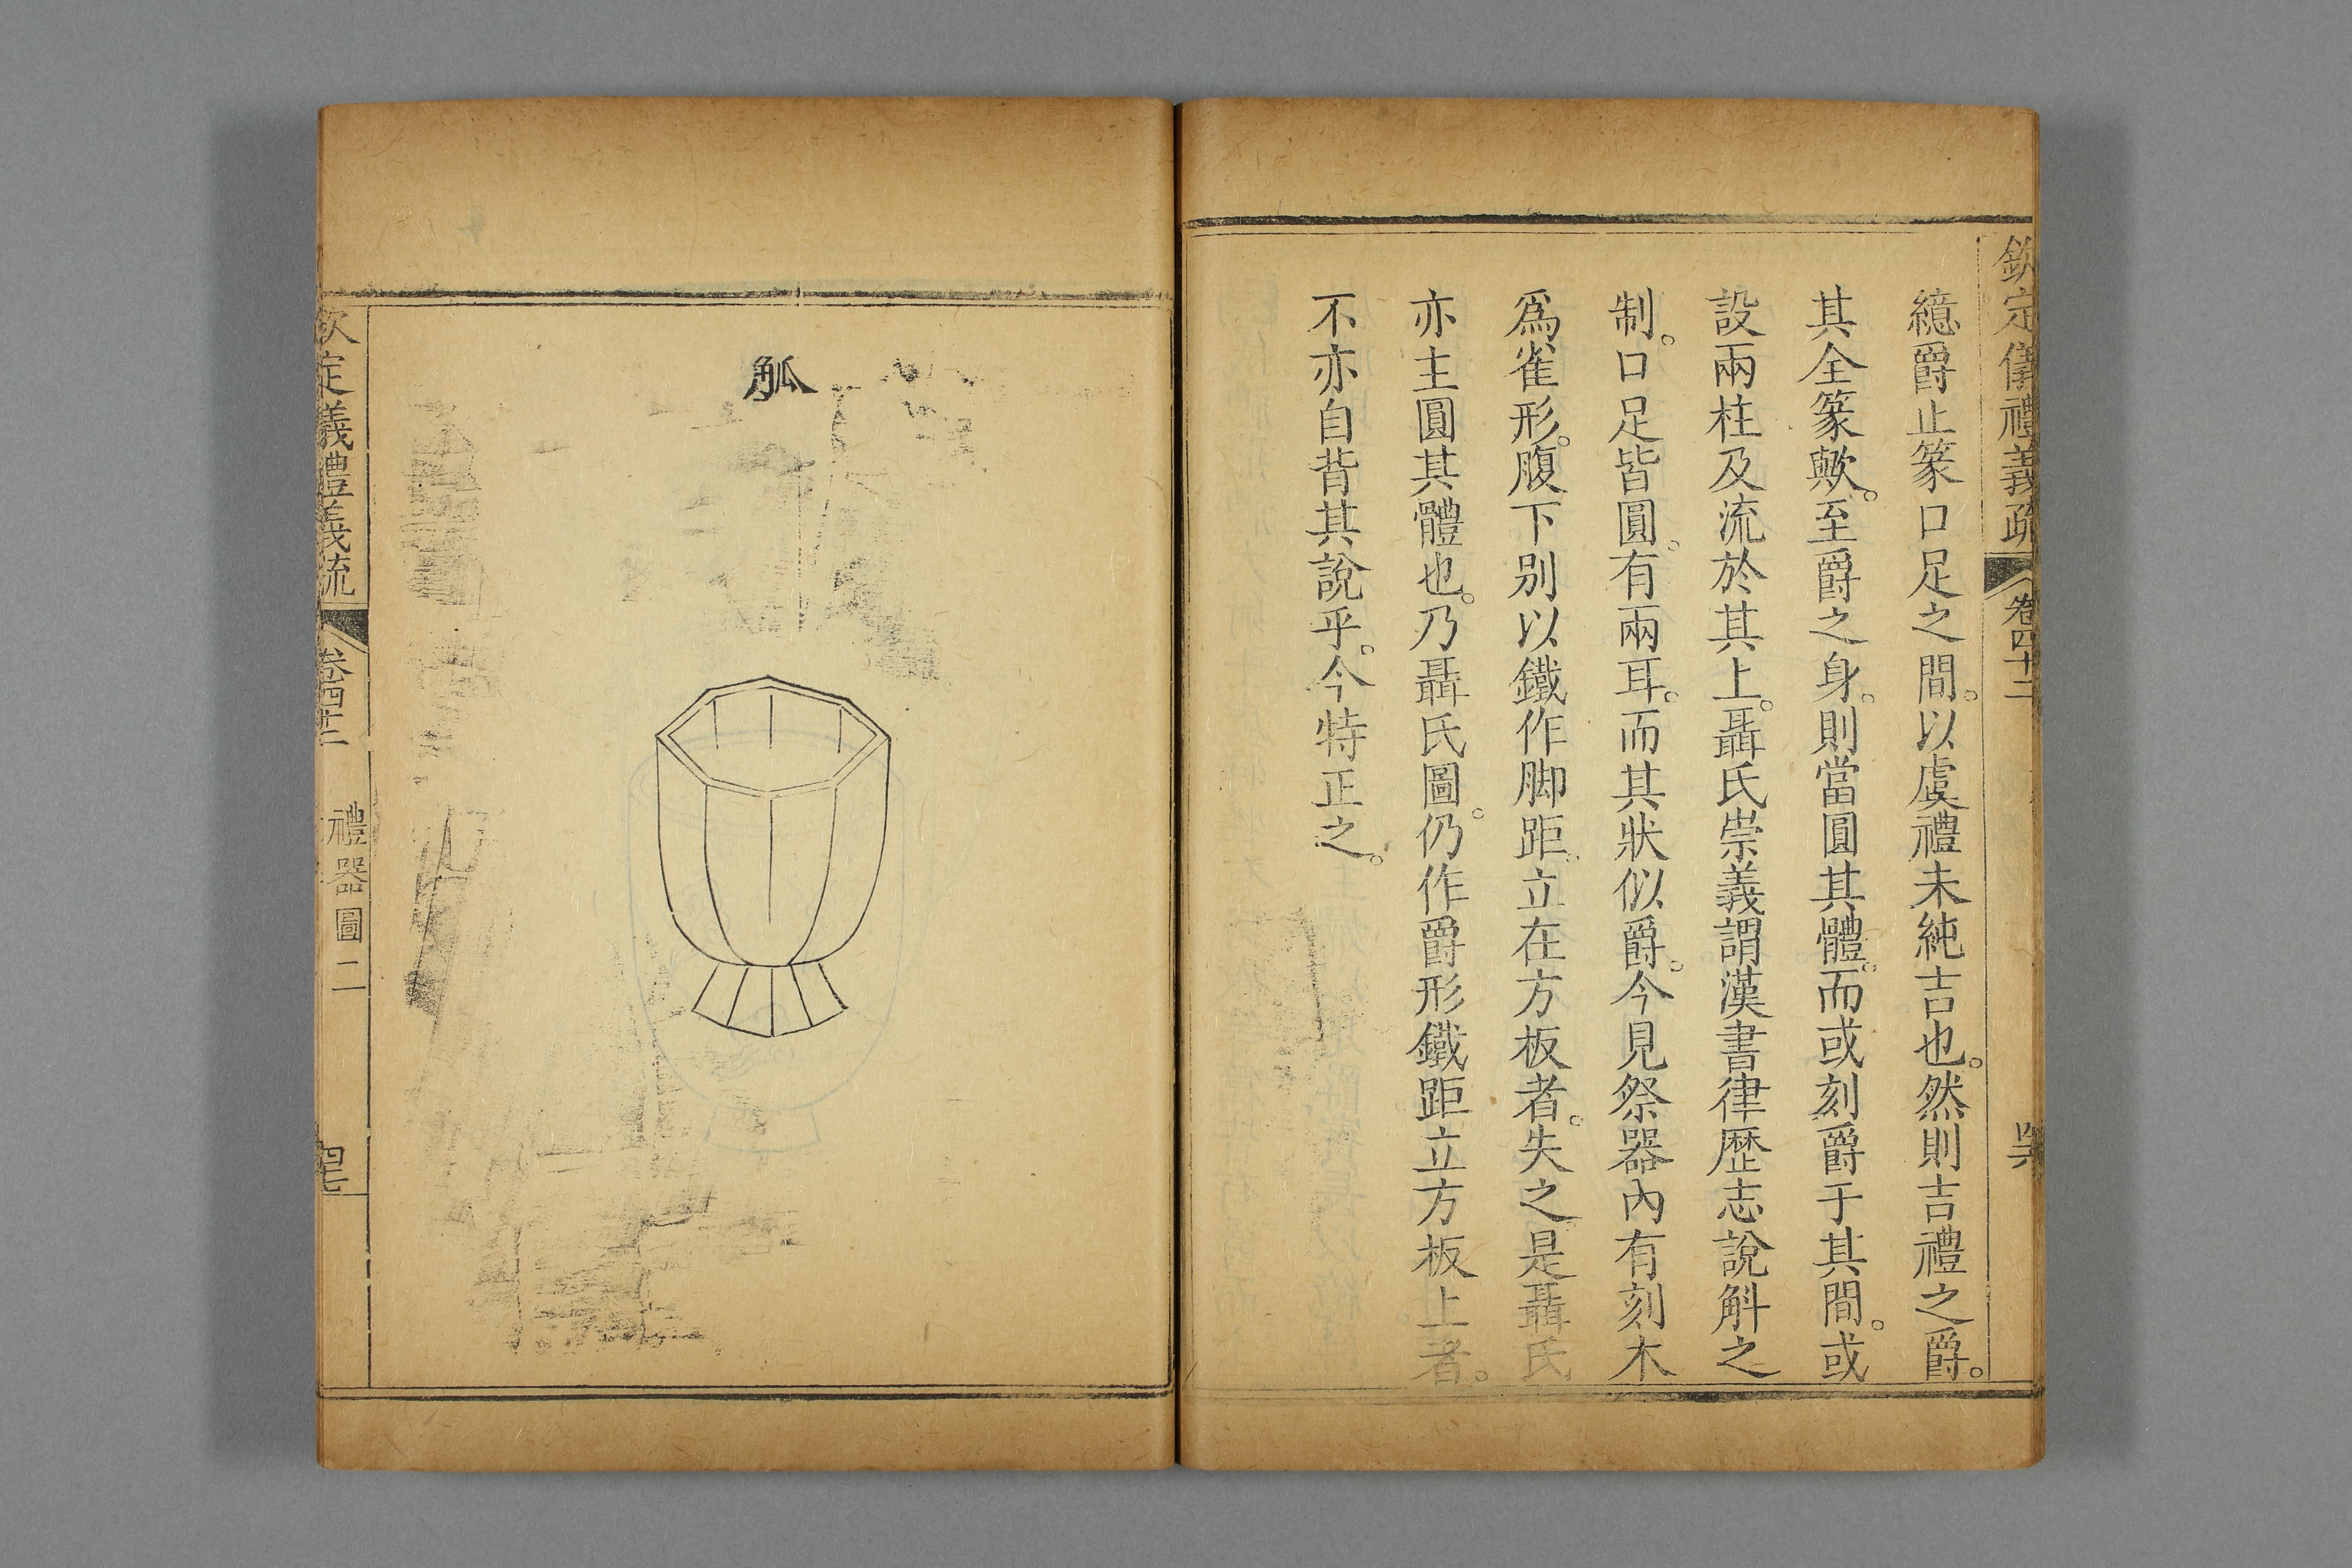 欽定儀禮義疏 卷四十二 四六
繶爵止篆口足之間。以虞禮未純吉也。然則吉禮之爵。
其全篆歟。至爵之身。則當圓其體。而或刻爵于其間。或
設兩柱及流於其上。聶氏崇義謂漢書律歷志說斛之
制。口足皆圓。有兩耳。而其狀似爵。今見祭器內有刻木
爲雀形。腹下別以鐵作脚距。立在方板者。失之。是聶氏
亦主圓其體也。乃聶氏圖。仍作爵形鐵距立方板上者。
不亦自背其說乎。今特正之。
觚
欽定儀禮義疏 卷四十二 禮器圖二 四七